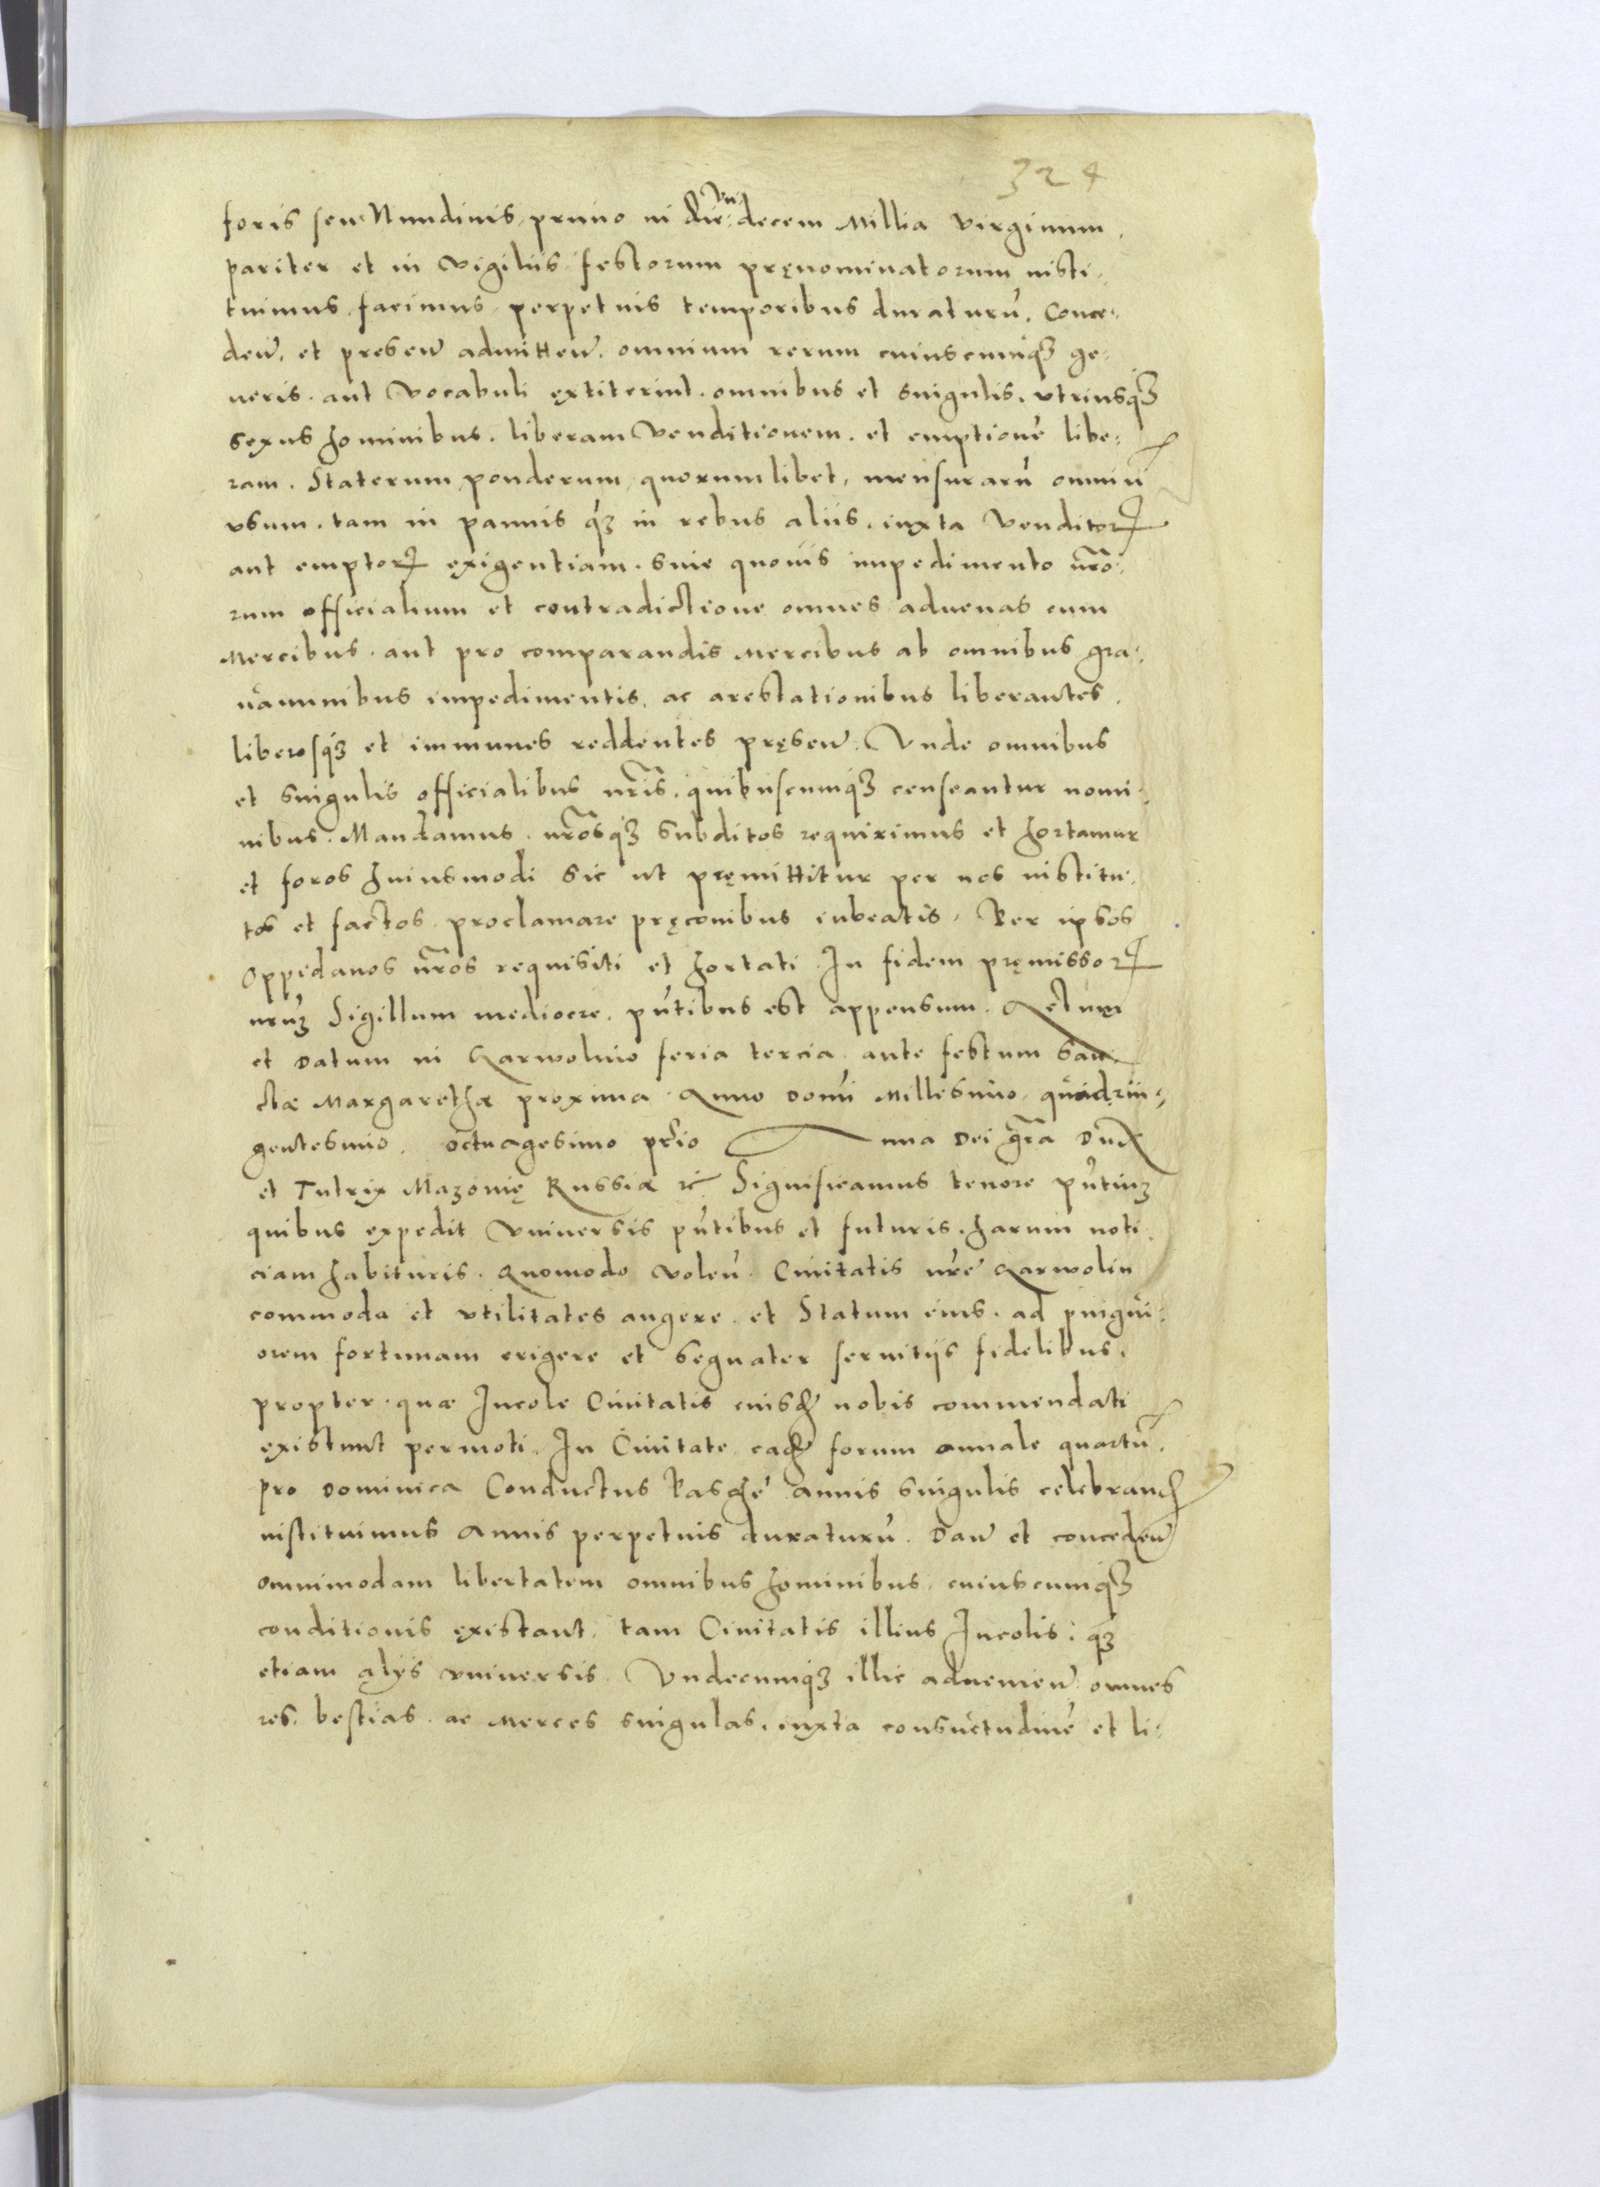 324
foris seu Nundinis, primo in die Vn decem Millia Virginum,
pariter et in vigiliis festorum pręnominatorum insti,
tuimus, facimus, perpetuis temporibus duraturũ, Conce,
deñ, et preseñ admitteñ, omnium rerum cuiuscumqʒ ge,
neris, aut Vocabuli extiterint, omnibus et singulis, vtriusqʒ
sexus hominibus, liberam Venditionem, et emptionẽ libe,
ram, Staterum, ponderum, quorumlibet, mensurarũ omniũ
vsum, tam in pannis qʒ in rebus aliis, iuxta Venditorꝝ
aut emptorꝝ exigentiam, sine quouis impedimento nr̃o,
rum officialium et contradictione omnes aduenas cum
Mercibus, aut pro comparandis Mercibus ab omnibus gra,
uaminibus impedimentis, ac arestationibus liberantes,
liberosqʒ et immunes reddentes pręseñ, Vnde omnibus
et singulis officialibus nr̃is, quibuscumqʒ censeantur nomi,
nibus, Mandamus, nr̃osqʒ subditos requirimus et hortamur
et foros huiusmodi sic ut pręmittitur per nos institu,
tos et factos, proclamare pręconibus iubeatis, Per ipsos
Oppedanos nr̃os requisiti et hortati In fidem pręmissorꝝ
nr̃uʒ Sigillum mediocre, pñtibus est appensum, Actum
et Datum in Garwolino feria tercia ante festum San
ctæ Margarethæ proxima Anno Domĩ Millesimo, quadrin,
gentesimo, octuagesimo prĩo Anna Dei gr̃a Dux
et Tutrix Mazouię Russiæ ꝛc̃ Significamus tenore pñtiuʒ
quibus expedit Vniuersis pñtibus et futuris, harum noti,
ciam habituris, Quomodo voleñ, Ciuitatis nr̃e Garwolin
commoda et vtilitates augere, et Statum eius, ad pingui,
orem fortunam erigere et segnater seruitijs fidelibus,
propter, quæ Incole Ciuitatis eiusdꝫ nobis commendati
existunt permoti, In Ciuitate eadꝫ forum annale quartũ,
pro Dominica Conductus Paschẽ annis singulis celebrandꝫ
instituimus annis perpetuis duraturũ, Dañ et concedeñ
omnimodam libertatem omnibus hominibus, cuiuscumqʒ
conditionis existant, tam Ciuitatis illius Incolis, qʒ
etiam alijs vniuersis, Vndecumqʒ illic aduenieñ omnes
res, bestias, ac Merces singulas, iuxta consuetudinẽ et li,